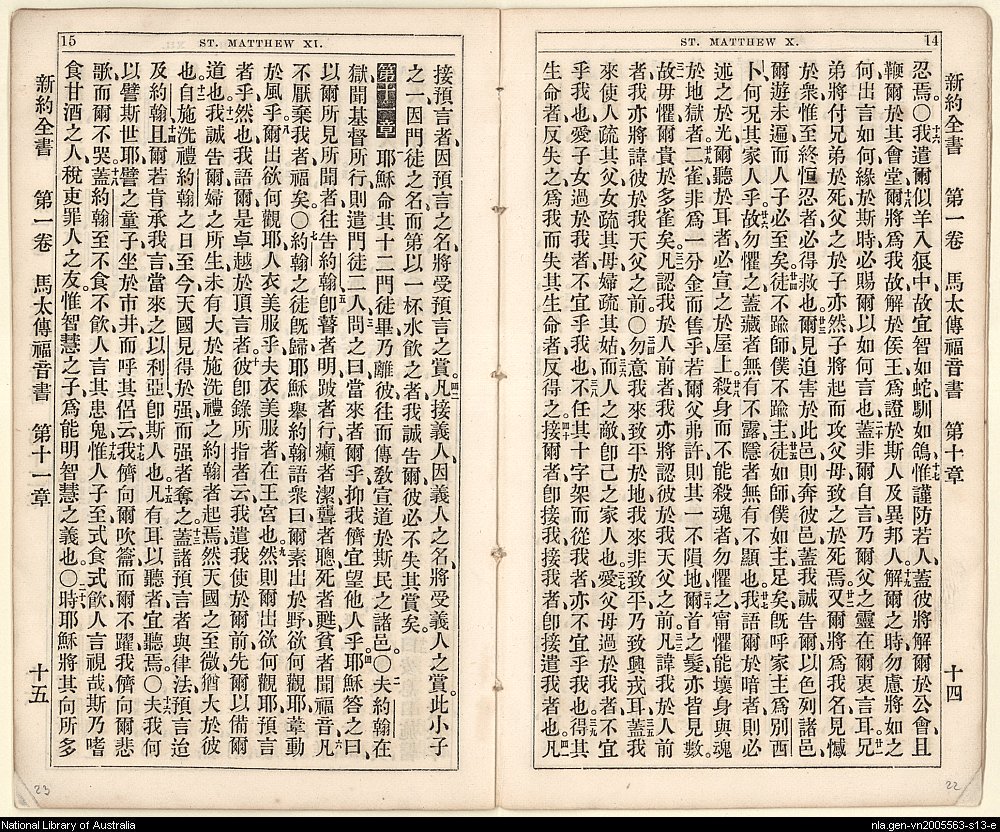 14
ST. MATTHEW X.
新約全書 第一卷 馬太傳福音書 第十章 十四
忍焉。○我遣爾似羊入狼中、故宜智如蛇、馴如鴿、惟謹防若人、蓋彼將解爾於公會、且
鞭爾於其會堂、爾將爲我故解於侯王、爲證於斯人及異邦人、解爾之時、勿慮將如之
何出言、如何緣於斯時、必賜爾以如何言也、蓋非爾自言、乃爾父之靈在爾衷言耳、兄
弟將付兄弟於死、父之於子亦然、子將起而攻父母、致之於死焉、又爾將爲我名見憾
於衆、惟至終恒忍者必得救也、爾見迫害於此邑、則奔彼邑、蓋我誠告爾、以色列諸邑
爾遊未遍、而人子必至矣、徒不踰師、僕不踰主、徒如師、僕如主足矣、旣呼家主爲別西
卜、何况其家人乎、故勿懼之、蓋藏者無有不露、隱者無有不顯也、我語爾於暗者、則必
述之於光、爾聽於耳者、必宣之於屋上、殺身而不能殺魂者勿懼之、甯懼能壞身與魂
於地獄者、二雀非爲一分金而售乎、若爾父弗許、則其一不隕地、爾首之髮亦皆見數、
故毋懼、爾貴於多雀矣、凡認我於人前者、我亦將認彼於我天父之前、凡諱我於人前
者、我亦將諱彼於我天父之前、○勿意我來致平於地、我來非致平、乃致興戎耳、蓋我
來使人疏其父、女疏其母、婦疏其姑、而人之敵、卽己之家人也、愛父母過於我者、不宜
乎我也、愛子女過於我者、不宜乎我也、不任其十字架而從我者、亦不宜乎我也、得其
生命者、反失之、爲我而失其生命者、反得之、接爾者卽接我、接我者卽接遣我者也、凡
22
15
ST. MATTHEW XI.
接預言者、因預言之名、將受預言之賞、凡接義人、因義人之名、將受義人之賞、此小子
之一、因門徒之名、而第以一杯水飲之者、我誠告爾、彼必不失其賞矣。
第十一章 耶穌命其十二門徒畢、乃離彼往而傳教宣道於斯民之諸邑。○夫約翰在
獄、聞基督所行、則遣門徒二人、問之曰、當來者爾乎、抑我儕宜望他人乎、耶穌答之曰、
以爾所見所聞者、往告約翰、卽瞽者明、跛者行、癩者潔、聾者聰、死者甦、貧者聞福音、凡
不厭棄我者福矣。○約翰之徒旣歸、耶穌舉約翰語衆曰、爾素出於野、欲何觀耶、葦動
於風乎、爾出欲何觀耶、人衣美服乎、夫衣美服者、在王宮也、然則爾出欲何觀耶、預言
者乎、然也、我語爾、是卓越於預言者、彼卽錄所指者云、我遣我使於爾前、先爾以備爾
道也、我誠告爾、婦之所生、未有大於施洗禮之約翰者起焉、然天國之至微、猶大於彼
也、自施洗禮約翰之日至今、天國見得於强、而强者奪之、蓋諸預言者與律法、預言迨
及約翰、且爾若肯承我言、當來之以利亞卽斯人也、凡有耳以聽者、宜聽焉。○夫我何
以譬斯世耶、譬之童子坐於市井、而呼其侶云、我儕向爾吹籥、而爾不躍、我儕向爾悲
歌、而爾不哭、蓋約翰至、不食不飲、人言其患鬼、惟人子至、式食式飲、人言視哉、斯乃嗜
食甘酒之人、稅吏罪人之友、惟智慧之子、爲能明智慧之義也。○時耶穌將其向所多
新約全書 第一卷 馬太傳福音書 第十一章 十五
23
National Library of Australia
nla.gen-vn2005563-s13-e